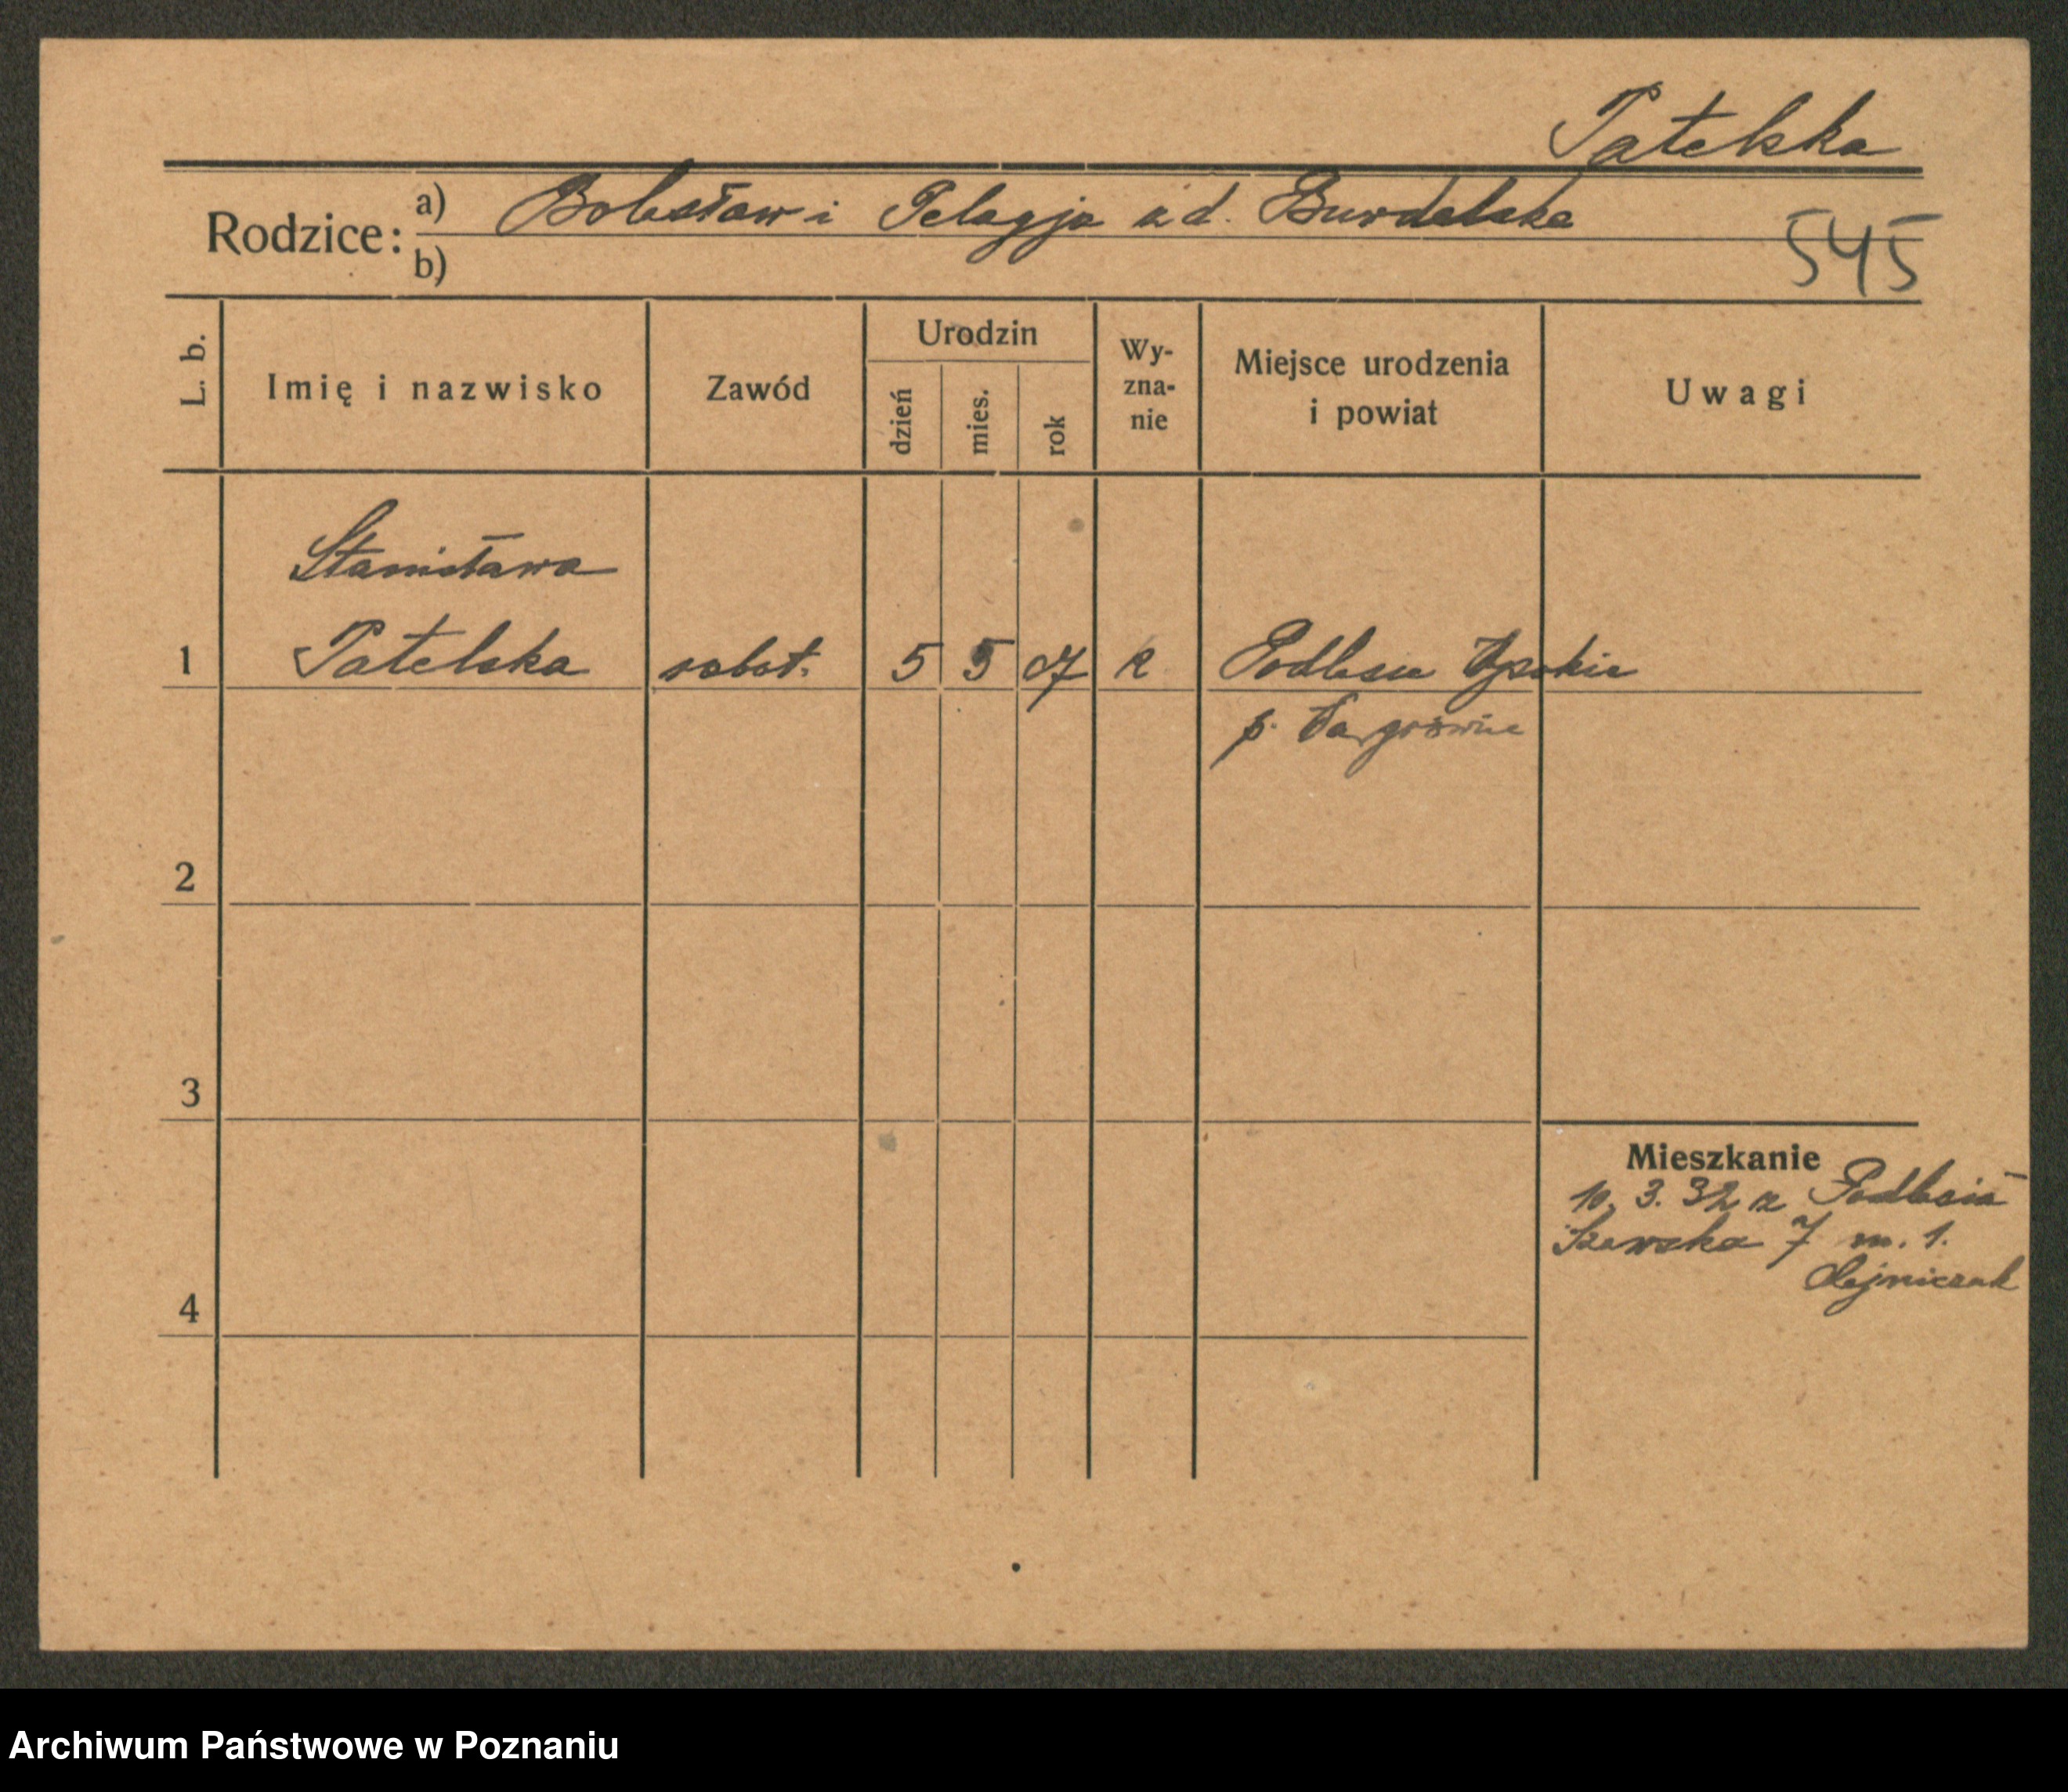 Patelska
Rodzice: a) Bolesław i Pelagja z d. Burdelska
b)
545
L. b.
Imię i nazwisko
Zawód
Urodzin
dzień
mies.
rok
Wy-
zna-
nie
Miejsce urodzenia
i powiat
Uwagi
Stanisława
1 Patelska robot. 5 5 07 k Podlesie Wysokie
p. Wągrówiec
2
3
Mieszkanie
10. 3. 32 z Podlesia
Szewska 7 m. 1.
Olejniczak
4
Archiwum Państwowe w Poznaniu